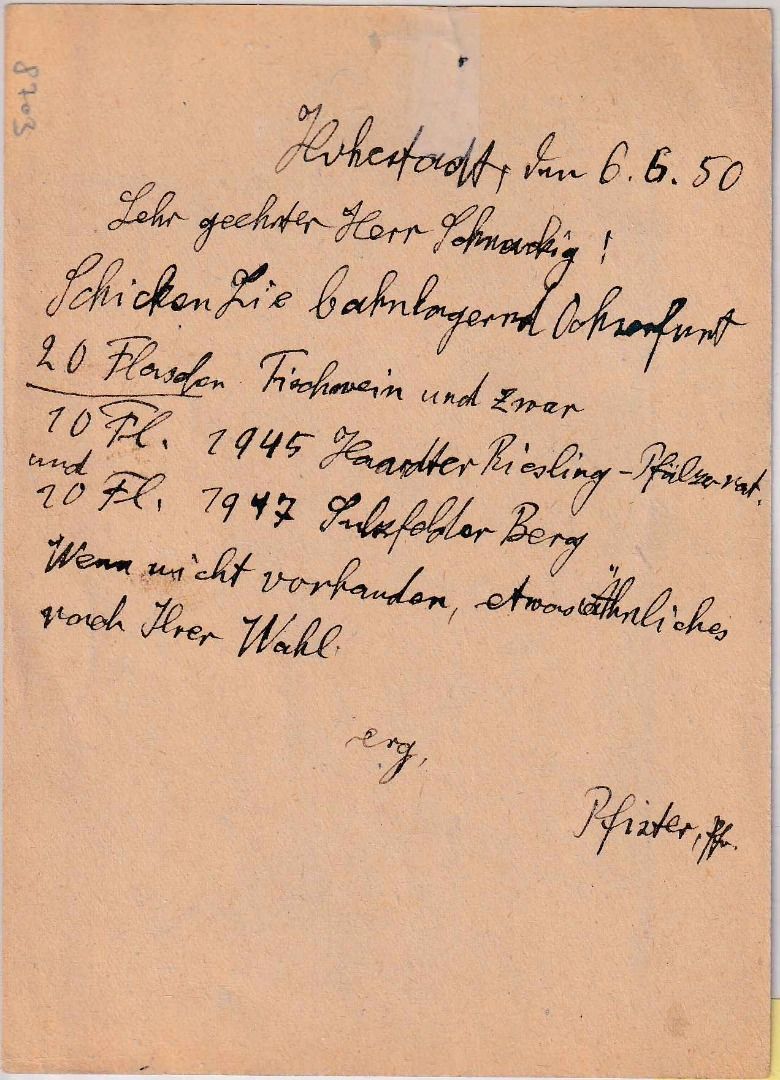 Hohestadt, den 6. 6. 50
Sehr geehrter Herr
Schicken Sie bahnlagernd Ochsenfurt
20 Flaschen Tischwein und zwar
10 Fl. 1945 Haardter Riesling -
und
10 Fl. 1947 Sulzfelder Berg
Wenn nicht vorhanden, etwas Ähnliches
nach Ihrer Wahl.
erg.
Pfister, Pfr.